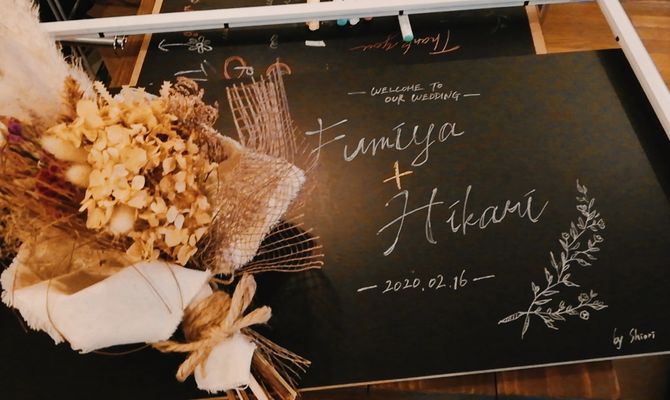 Thank you
WELCOME TO
OUR WEDDING
Fumiya
+
Hikari
2020.02.16
by Shiori